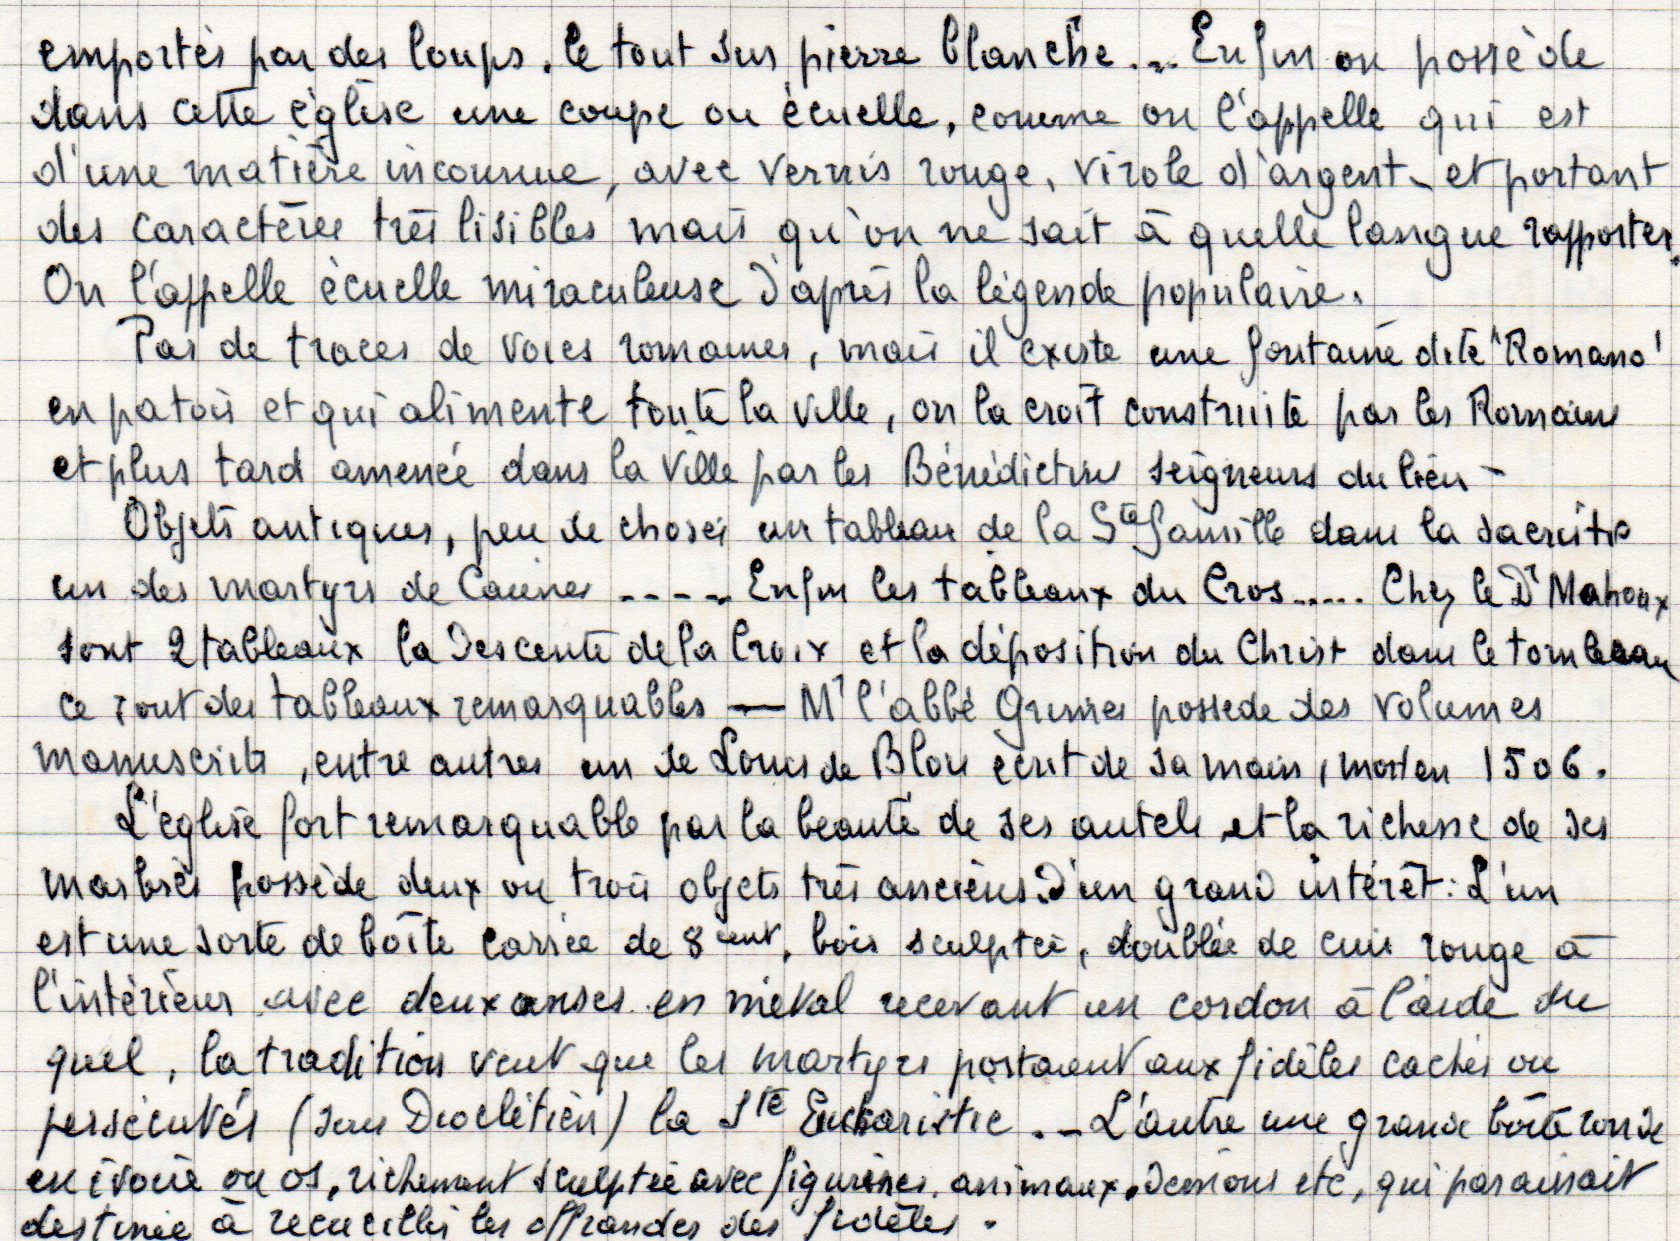 emportés par des loups. le tout sur pierre blanche... Enfin on possède
dans cette église une coupe ou écuelle, comme on l'appelle qui est
d'une matière inconnue, avec vernis rouge, virole d'argent et portant
des caractères très lisibles mais qu'on ne sait à quelle langue rapporter.
On l'appelle écuelle miraculeuse d'après la légende populaire.
Pas de traces de voies romaines, mais il existe une fontaine dite "Romano"
en patois et qui alimente toute la ville, on la croit construite par les Romains
et plus tard amenée dans la ville par les Bénédictins seigneurs du lieu -
Objets antiques, peu de choses un tableau de la Ste famille dans la sacristie
un des martyrs de Caunes ----- Enfin les tableaux du Cros..... Chez le Dr Mahoux
sont 2 tableaux la Descente de la Croix et la déposition du Christ dans le tombeau
ce sont des tableaux remarquables — Mr l'abbé possede des volumes
manuscrits, entre autres un de Louis de Blois ecrit de sa main, mort en 1506.
L'église fort remarquable par la beauté de ses autels et la richesse de ses
marbres possède deux ou trois objets très anciens d'un grand intérêt: L'un
est une sorte de boîte carrée de 8 cent, bois sculptée, doublée de cuir rouge à
l'intérieur avec deux anses en métal recevant un cordon à l'aide du
quel, la tradition veut que les martyrs portaient aux fidèles cachés ou
persécutés (sous Dioclétien) la Ste Eucharistie .- L'autre une grande boîte ronde
en ivoire ou os, richement sculptée avec figurines, animaux, démons etc, qui paraissait
destinée à recueillir les offrandes des fidèles.